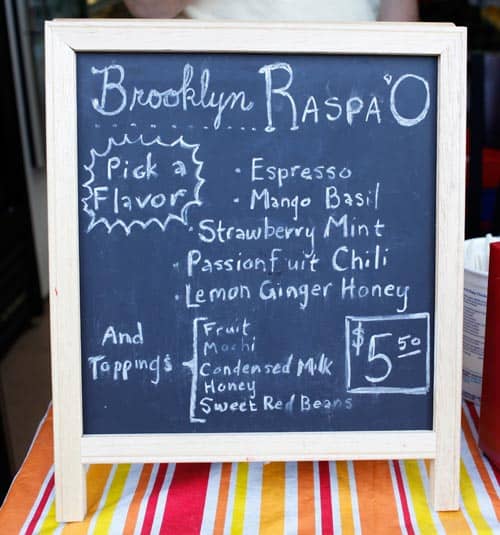 Brooklyn RASPA'O
Pick a
Flavor
· Espresso
· Mango Basil
· Strawberry Mint
· Passionfruit Chili
· Lemon Ginger Honey
And
Toppings
Fruit
Mochi
Condensed Milk
Honey
Sweet Red Beans
$5.50